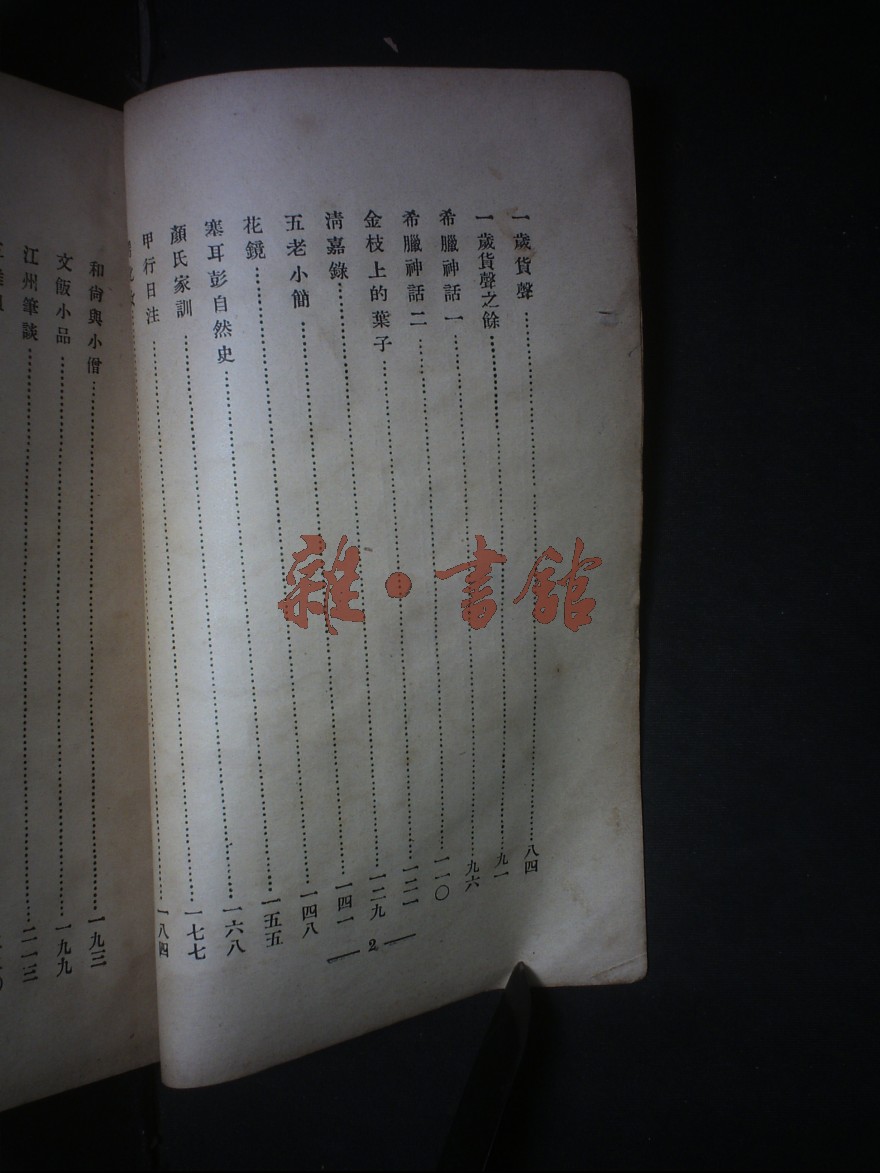 一歲貨聲……八四
一歲貨聲之餘……九一
希臘神話一……九六
希臘神話二……一一〇
金枝上的葉子……一二一
清嘉錄……一二九
五老小簡……一四一
花鏡……一四八
塞耳彭自然史……一五五
顏氏家訓……一六八
甲行日注……一七七
……一八四
2
和尙與小僧……一九三
文飯小品……一九九
江州筆談……二一三
雜·書館